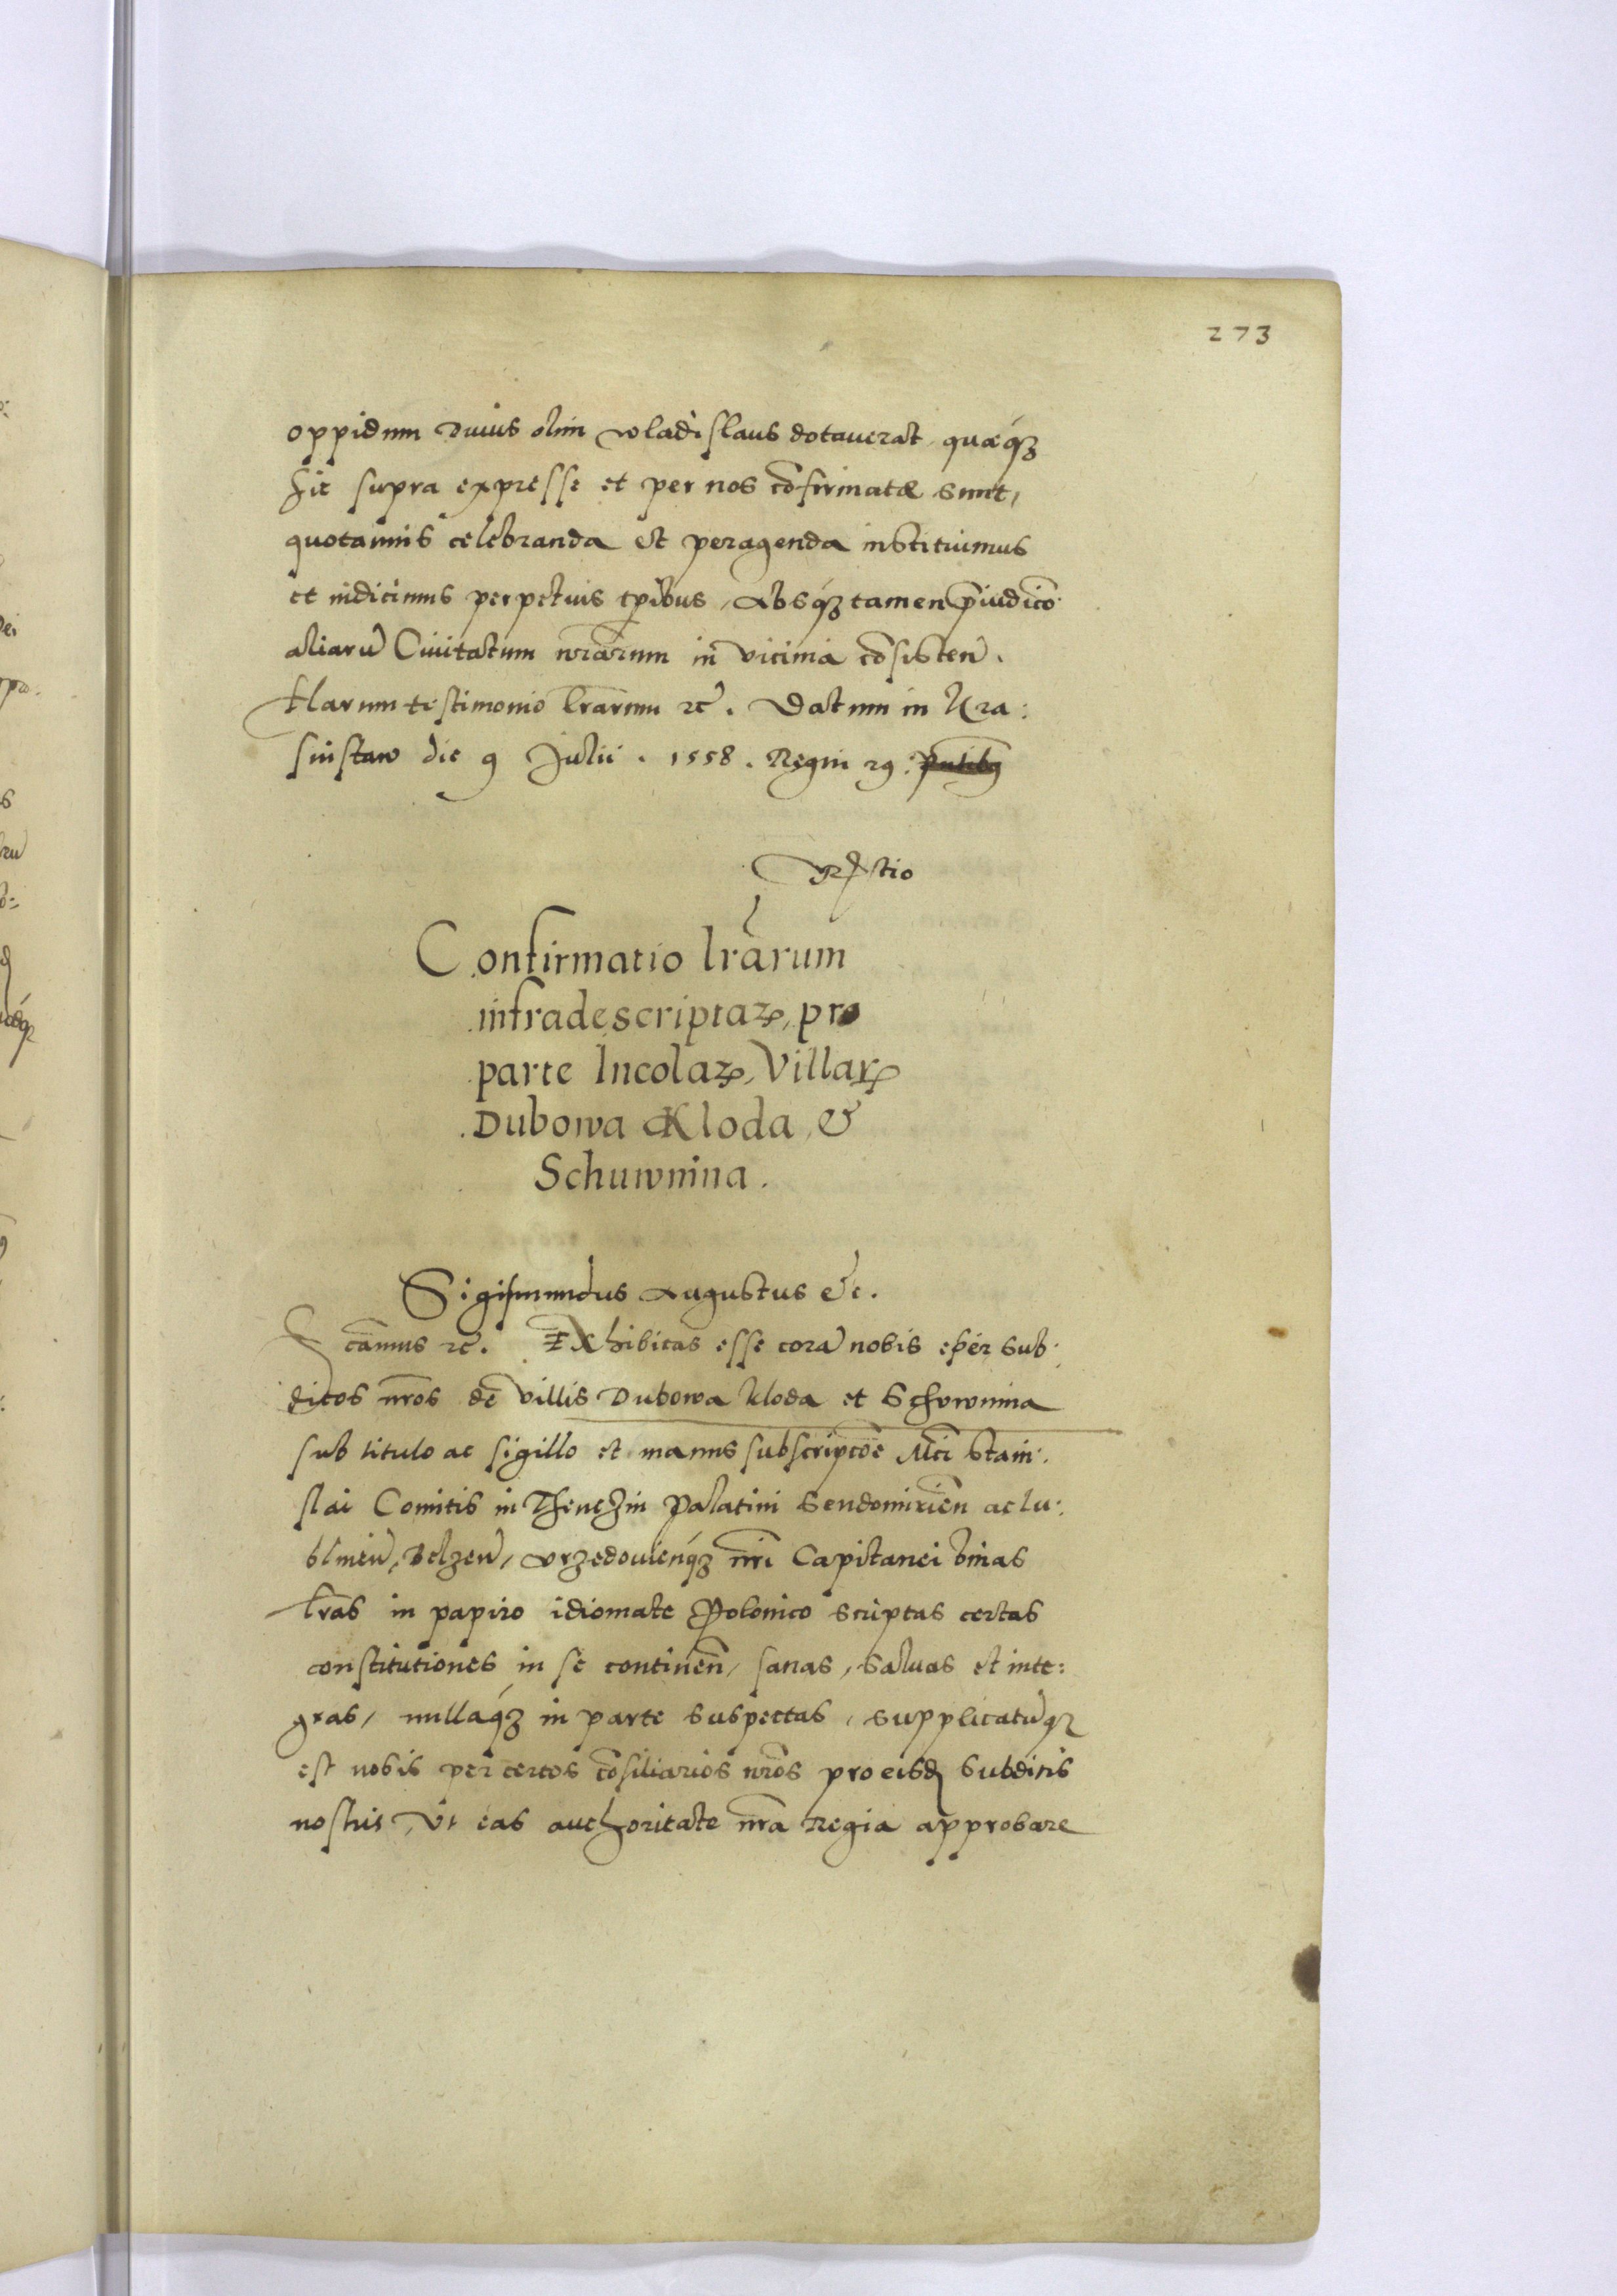 273
oppidum Diuus olim wladislaus dotauerat quæq́ꝫ
hic supra expresse et per nos cōfirmatæ sunt,
quotannis celebranda et peragenda instituimus
et indicimus perpetuis tp̄ibus, absq́ꝫ tamen p̄iudico
aliarū Ciuitatum nr̄arum in vicinia cōsisten̄.
Harum testimonio lr̄arum ꝛc̄. Datum in Kra:
snistaw die 9 Julii. 1558. Regni 29.
Confirmatio lr̄arum
infradescriptaꝝ, pro
parte Incolaꝝ, Villaꝝ
Dubowa Kloda, &
Schuwnina.
Sigismundus Augustus &c.
cāmus ꝛc̄. Exhibitas esse corā nobis per sub:
ditos nr̄os de villis Dubowa kloda et Schvwnina
sub titulo ac sigillo et manus subscriptōe Mc̄i Stani:
slai Comitis in Thenczin Palatini Sendomirien̄ ac lu:
blinen̄, Belzen̄, vrzedouien̄q́ꝫ nr̄i Capitanei binas
lr̄as in papiro idiomate Polonico scriptas certas
constitutiones in se continen̄, sanas, saluas et inte:
gras, nullaq́ꝫ in parte suspectas, supplicatūqꝫ
est nobis per certos cōsiliarios nr̄os pro eisdꝫ subditis
nostris, vt eas authoritate nr̄a Regia approbare